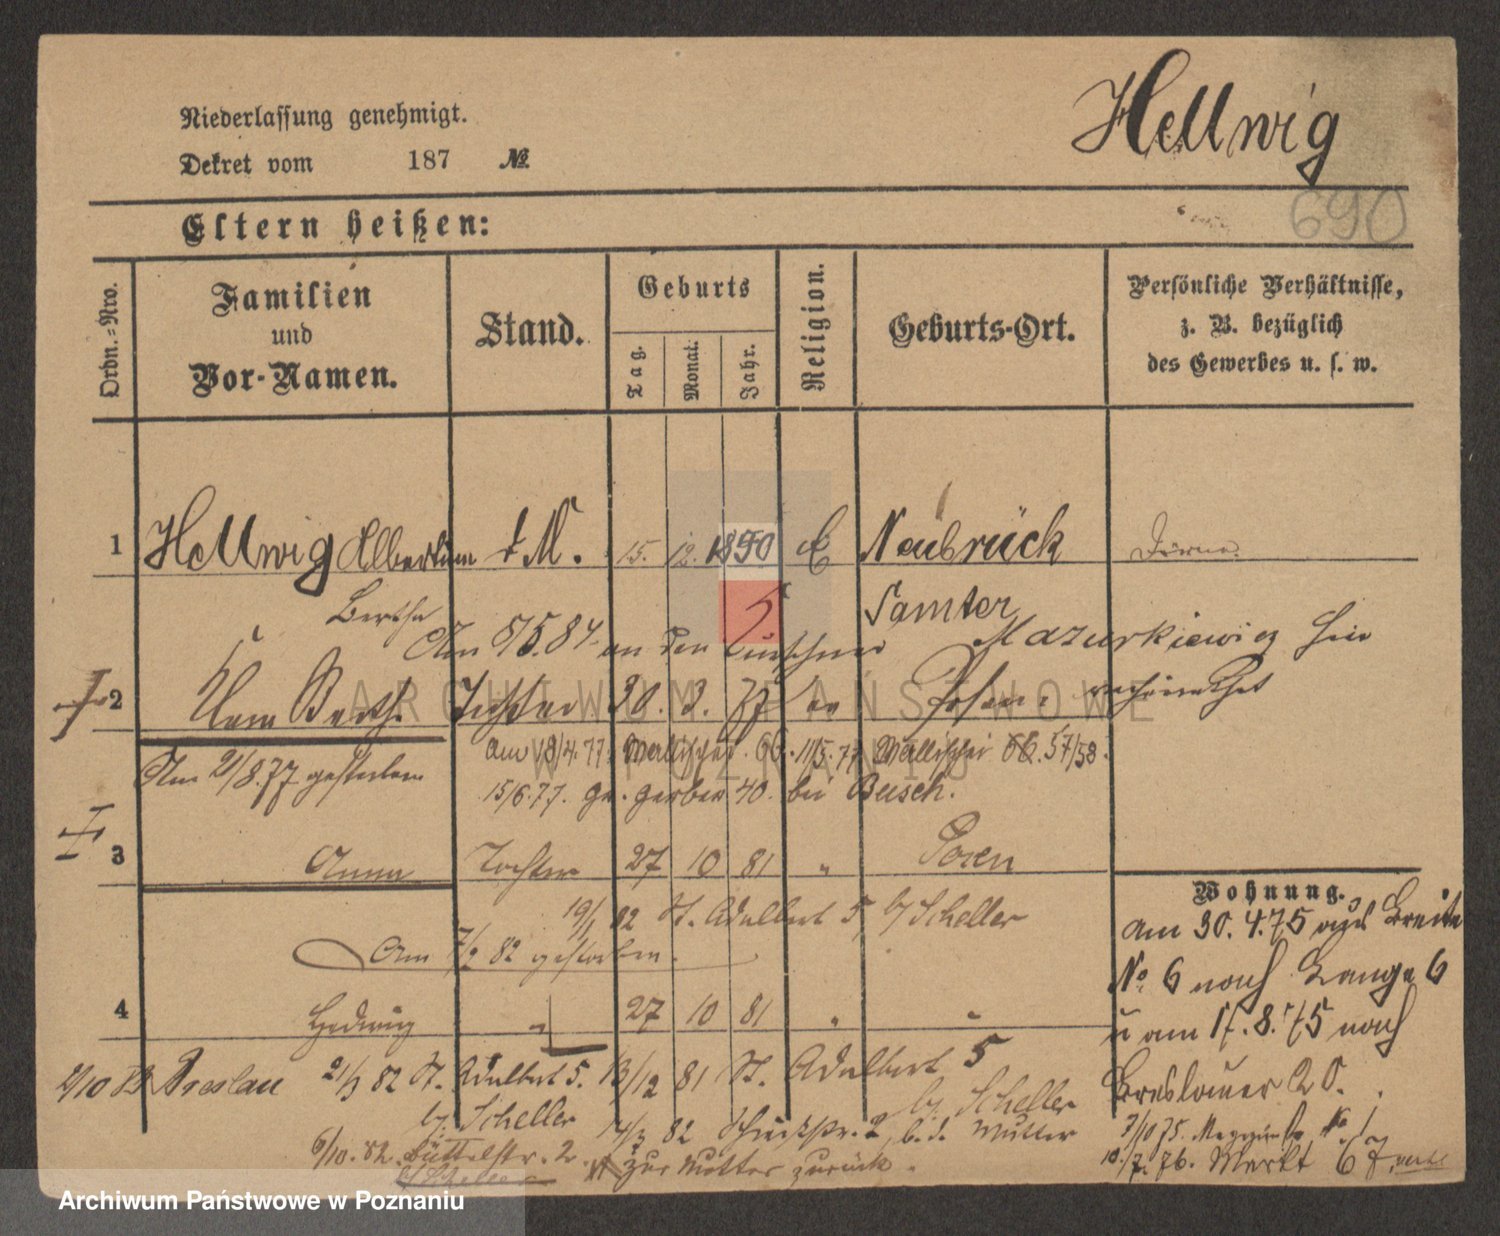 Hellwig
Niederlassung genehmigt.
Dekret vom 187 №
690
Eltern heißen:
Ordn.-Nro.
Familien
und
Vor-Namen.
Stand.
Geburts
Tag.
Monat.
Jahr.
Religion.
Geburts-Ort.
Persönliche Verhältnisse,
z. B. bezüglich
des Gewerbes u. s. w.
1 Hellwig Albertine d M. 15. 12. 1850 E Neubrück Dirne.
Bertha Samter
Am 5/5.84 an den Mazurkiewicz hier
verheirathet
2 Bertha Tochter 30. 3. 77 ev Posen.
Am 18/4.77. Wallischei 66. 11/5.77 Wallischei 57/58.
Am 2/8.77 gestorben
15/6.77. gr. gerber 40. bei Busch.
3 Anna Tochter 27 10 81 " Posen
19/1 82 St. Adalbert 5 b/ Scheller
Am 7/2 82 gestorben.
4 Hedwig " 27 10 81 " "
Wohnung.
am 30.4.75 aus Breite
No. 6 nach Lange 6
u am 17.8.75 nach
Breslauer 20.
7/10 75.
10./7. 76. Markt 67
Breslau 21/3 82 St. Adalbert 5. 13/12 81 St. Adalbert 5
b/ Scheller b/ Scheller
82 2, b. d. Mutter
6/10. 82. Büttelstr. 2. zur Mutter zurück.
b/ Scheller
ARCHIWUM PAŃSTWOWE
W POZNANIU
Archiwum Państwowe w Poznaniu